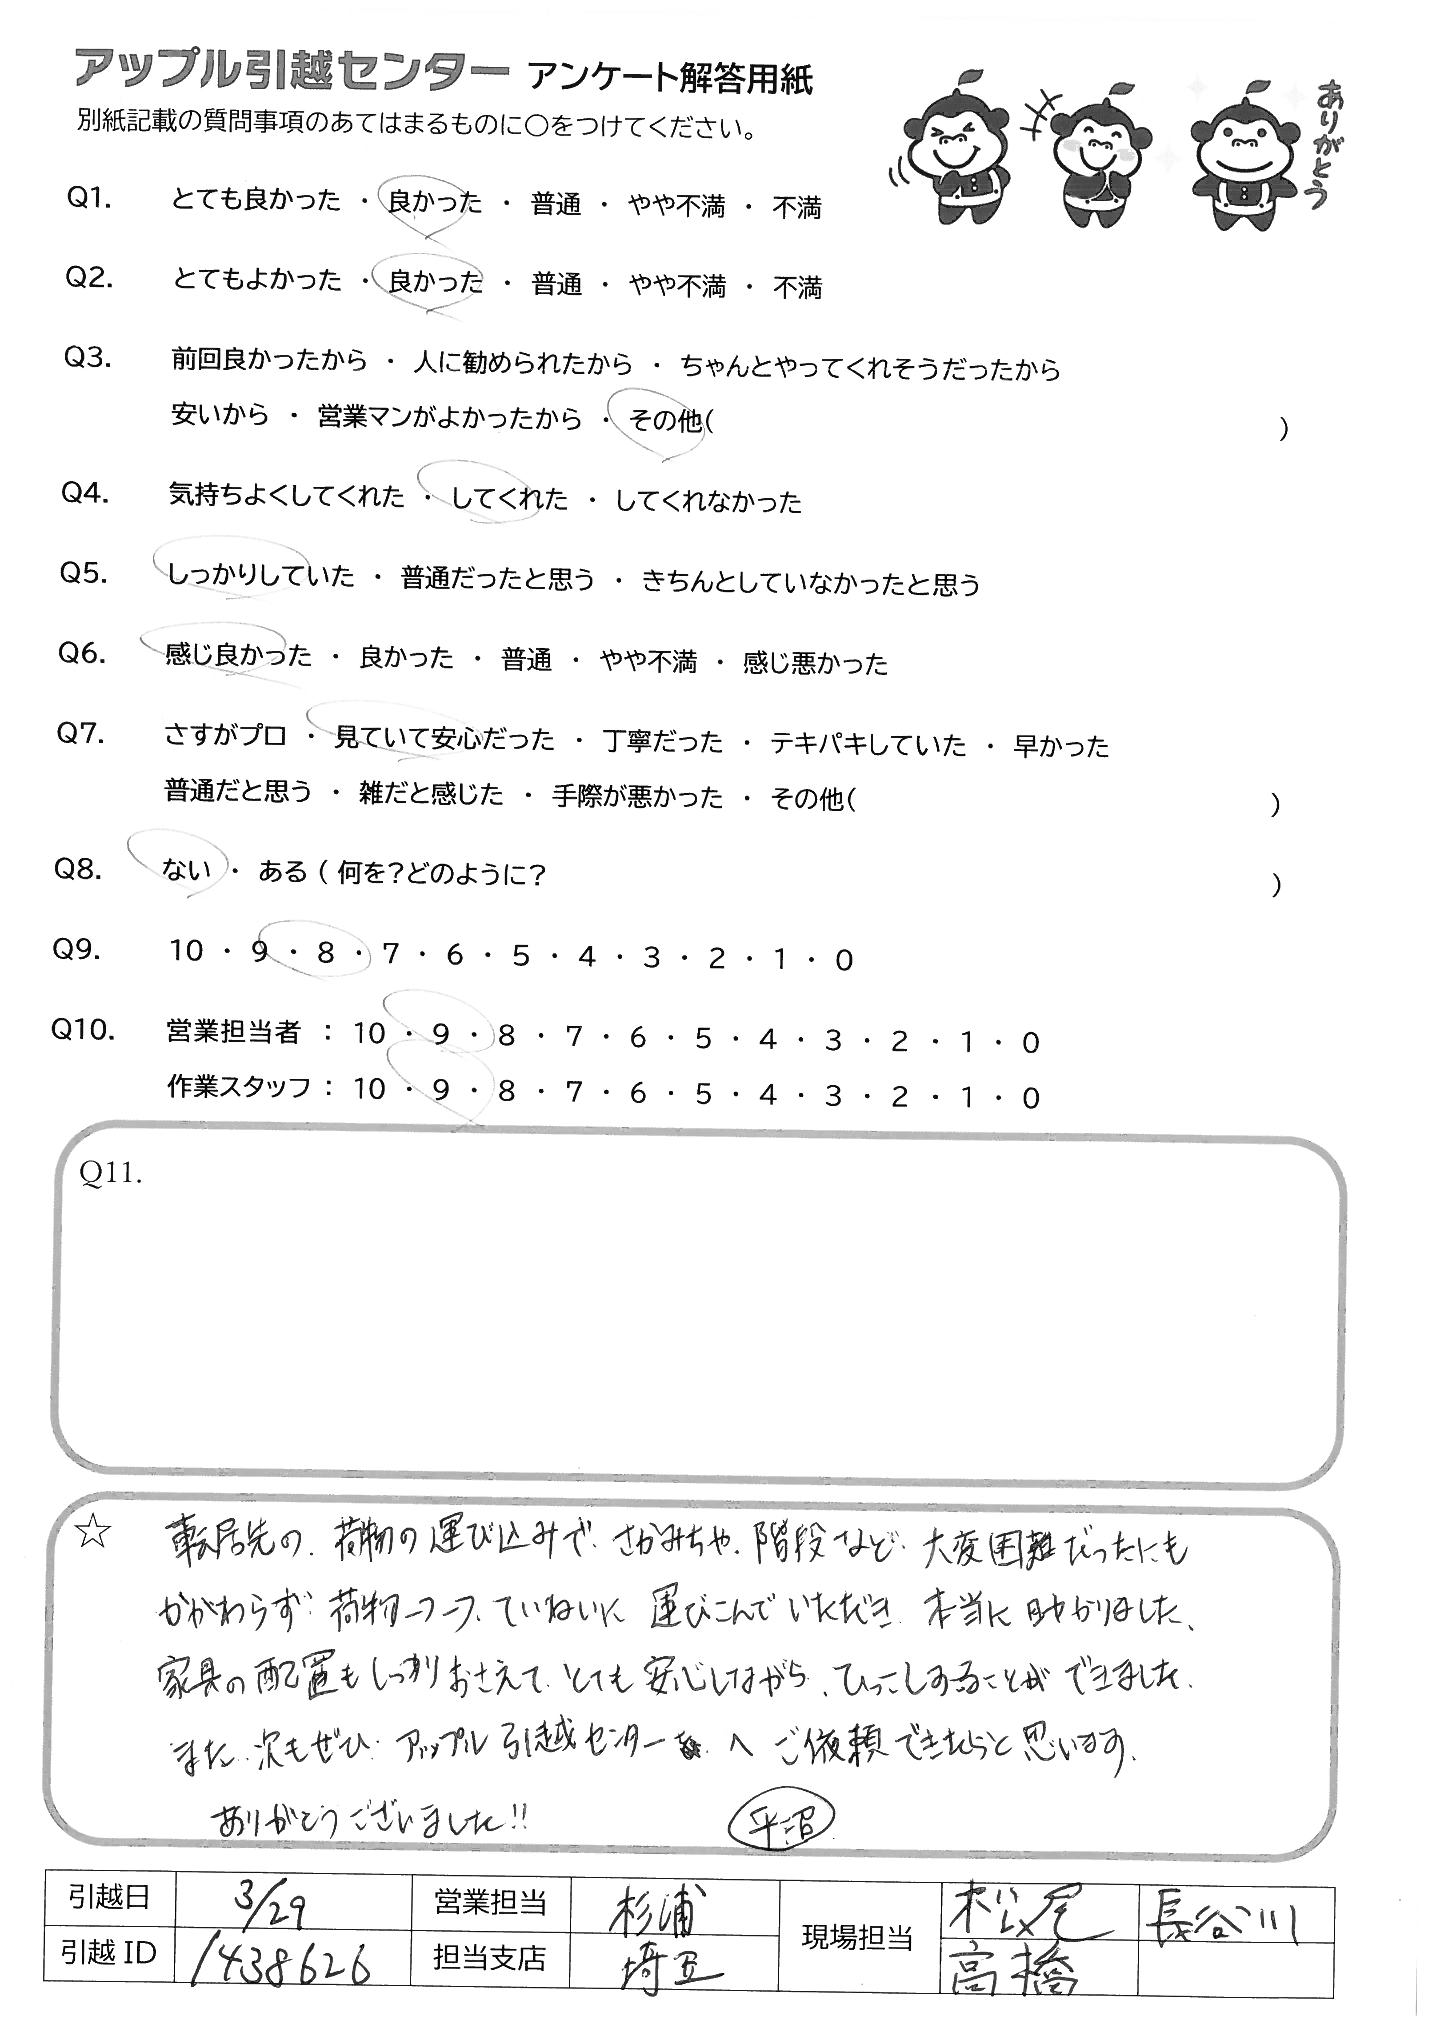 アップル引越センター アンケート解答用紙
別紙記載の質問事項のあてはまるものに〇をつけてください。
ありがとう
Q1. とても良かった ・ 良かった ・ 普通 ・ やや不満 ・ 不満
Q2. とてもよかった ・ 良かった ・ 普通 ・ やや不満 ・ 不満
Q3. 前回良かったから ・ 人に勧められたから ・ ちゃんとやってくれそうだったから
安いから ・ 営業マンがよかったから ・ その他( )
Q4. 気持ちよくしてくれた ・ してくれた ・ してくれなかった
Q5. しっかりしていた ・ 普通だったと思う ・ きちんとしていなかったと思う
Q6. 感じ良かった ・ 良かった ・ 普通 ・ やや不満 ・ 感じ悪かった
Q7. さすがプロ ・ 見ていて安心だった ・ 丁寧だった ・ テキパキしていた ・ 早かった
普通だと思う ・ 雑だと感じた ・ 手際が悪かった ・ その他( )
Q8. ない ・ ある ( 何を?どのように? )
Q9. 10 ・ 9 ・ 8 ・ 7 ・ 6 ・ 5 ・ 4 ・ 3 ・ 2 ・ 1 ・ 0
Q10. 営業担当者 : 10 ・ 9 ・ 8 ・ 7 ・ 6 ・ 5 ・ 4 ・ 3 ・ 2 ・ 1 ・ 0
作業スタッフ : 10 ・ 9 ・ 8 ・ 7 ・ 6 ・ 5 ・ 4 ・ 3 ・ 2 ・ 1 ・ 0
Q11.
☆ 転居先の、荷物の運び込みで、さかみちや、階段など、大変困難だったにも
かかわらず、荷物一つ一つ、ていねいに運びこんでいただき、本当に助かりました、
家具の配置もしっかりおさえて、とても安心しながら、ひっこしすることができました、
また、次もぜひ、アップル引越センターへご依頼できたらと思います、
ありがとうございました!! 平沼
引越日 3/29 営業担当 杉浦 現場担当 松尾 長谷川
引越ID 1438626 担当支店 埼玉 高橋